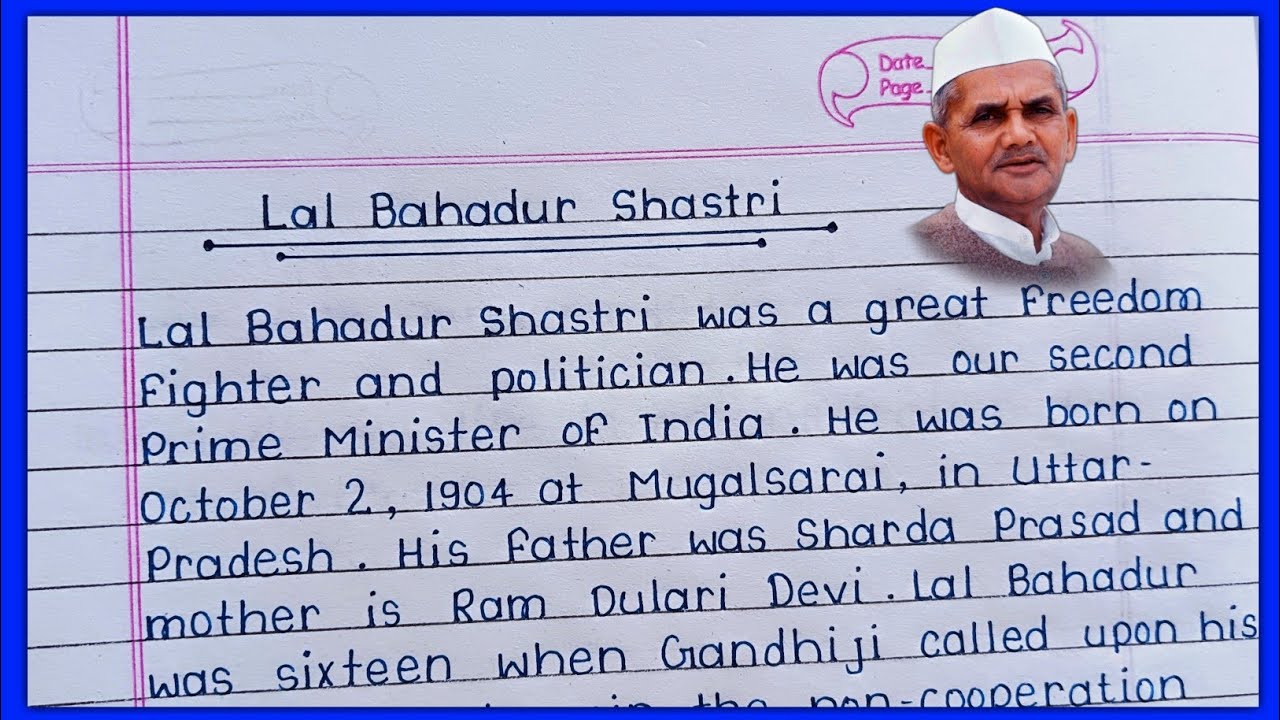 Date
Page
Lal Bahadur Shastri
Lal Bahadur Shastri was a great freedom
fighter and politician. He was our second
prime Minister of India. He was born on
October 2, 1904 at Mugalsarai, in Uttar-
Pradesh. His father was Sharda Prasad and
mother is Ram Dulari Devi. Lal Bahadur
was sixteen when Gandhiji called upon his
in the non-cooperation